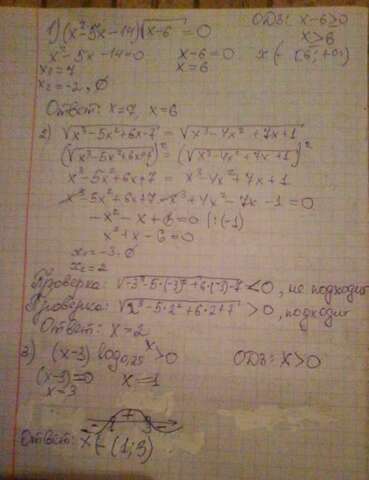 1) (x²-5x-14)√x-6 = 0 ОДЗ: x-6≥0
x²-5x-14=0 x-6=0 x>6
x₁=7 x=6
x₂=-2, ∅
Ответ: x=7, x=6
2) √x³-5x²+6x+7 = √x³-4x²+7x+1
(√x³-5x²+6x+7)² = (√x³-4x²+7x+1)²
x³-5x²+6x+7 = x³-4x²+7x+1
x³-5x²+6x+7-x³+4x²-7x-1=0
-x²-x+6=0 |:(-1)
x²+x-6=0
x₁=-3 ∅
x₂=2
Проверка: √-3³-5·(-3)²+6·(-3)+7 <0, не подходит
Проверка: √2³-5·2²+6·2+7 >0, подходит
Ответ: x=2
3) (x-3) log₀,₂₅ x>0 ОДЗ: x>0
(x-3)=0 x=1
x=3
- 1 + 3 -
Ответ: x∈(1;3)